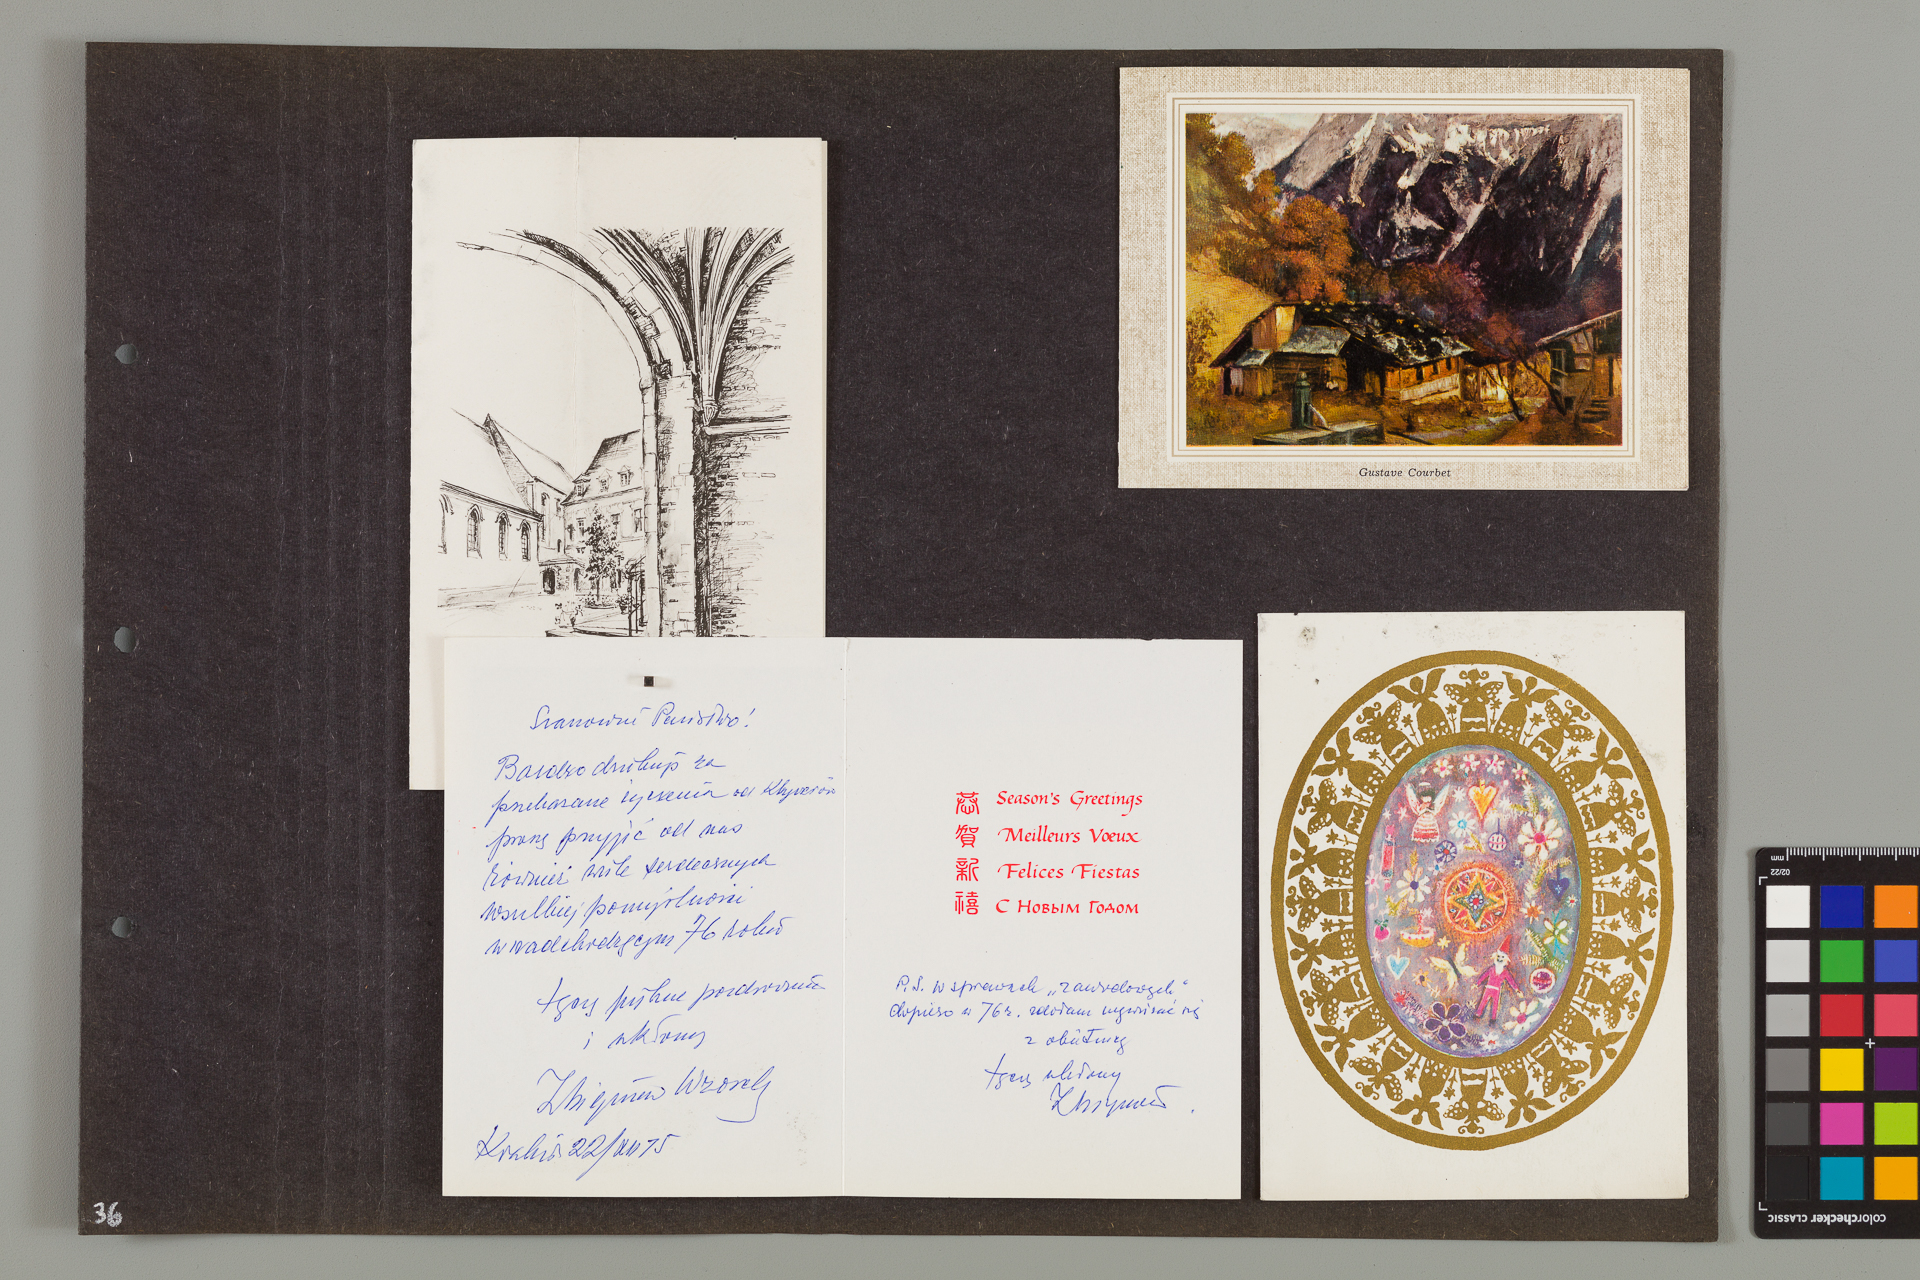 Gustave Courbet
Szanowni Państwo!
Bardzo dziękuję za
przekazane życzenia od
proszę przyjąć od nas
również wiele serdecznych
wszelkiej pomyślności
w nadchodzącym 76 roku
Łączę piękne pozdrowienia
i ukłony
Zbigniew Wzorek
Kraków 22/XII 75
恭賀新禧
Season's Greetings
Meilleurs Vœux
Felices Fiestas
С Новым Годом
P.S. W sprawach „zawodowych"
dopiero w 76 r. zdołam się
z
Łączę ukłony
Zbigniew
36
mm
02/22
colorchecker CLASSIC